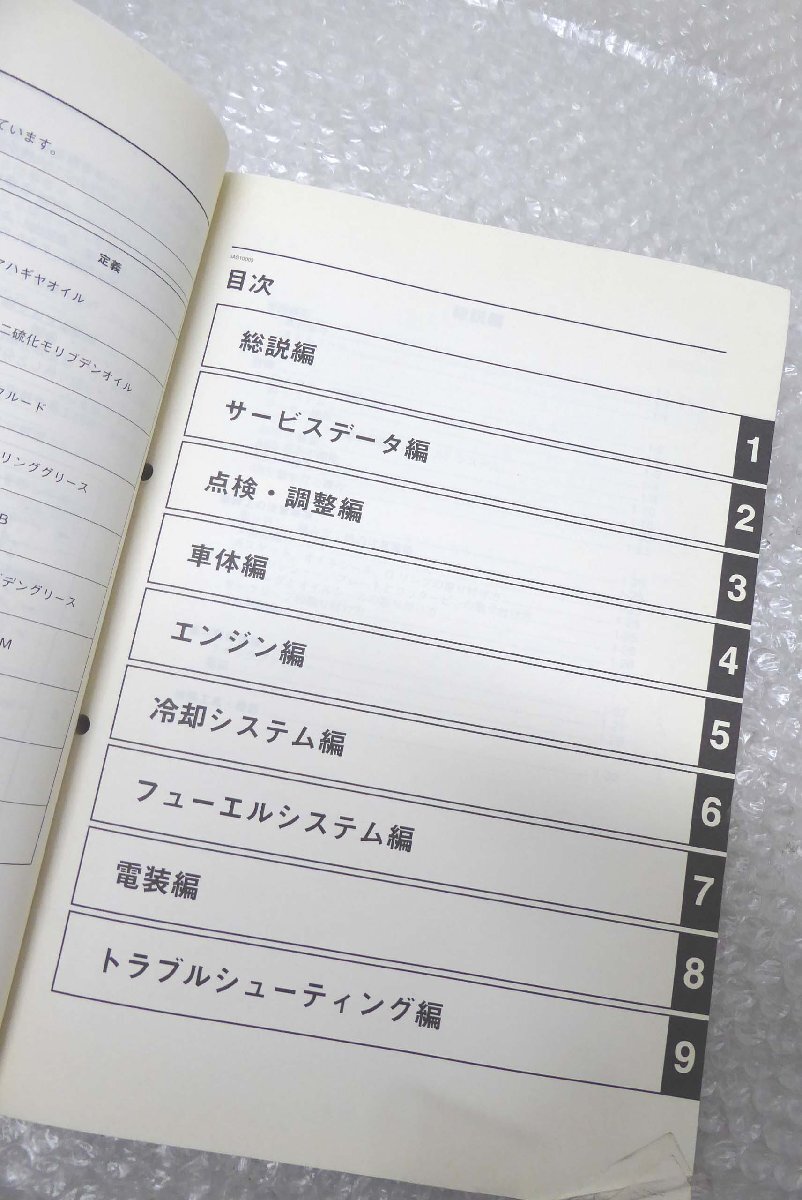 ています。
定義
ハギヤオイル
二硫化モリブデンオイル
フルード
リンググリース
B
デングリース
M
目次
総説編
1
サービスデータ編
2
点検・調整編
3
車体編
4
エンジン編
5
冷却システム編
6
フューエルシステム編
7
電装編
8
トラブルシューティング編
9